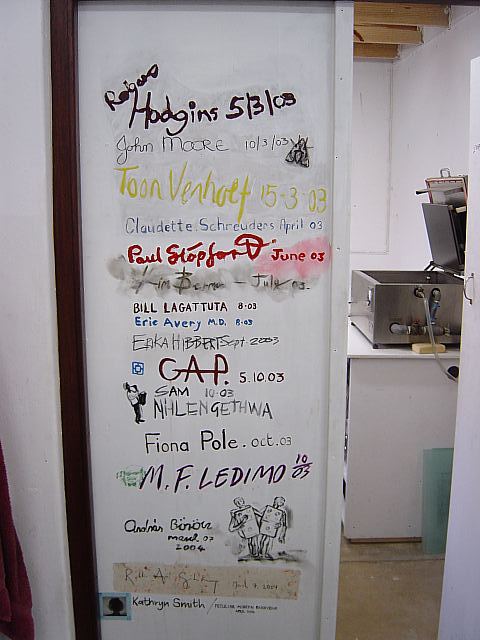 Robert
Hodgins 5/3/03
John MOORE 10/3/03
Toon Verhoef 15-3-03
Claudette Schreuders April 03
Paul Stopforth June 03
Kim Berman - July 03
BILL LAGATTUTA 8·03
Eric Avery M.D. 8·03
ERIKA HIBBERT Sept 2003
GAP. 5.10.03
SAM 10·03
NHLENGETHWA
Fiona Pole. oct.03
M.F. LEDIMO 10/03
András Böröcz
march 07
2004
Kathryn Smith / PECULIAR MODERN BEHAVIOUR